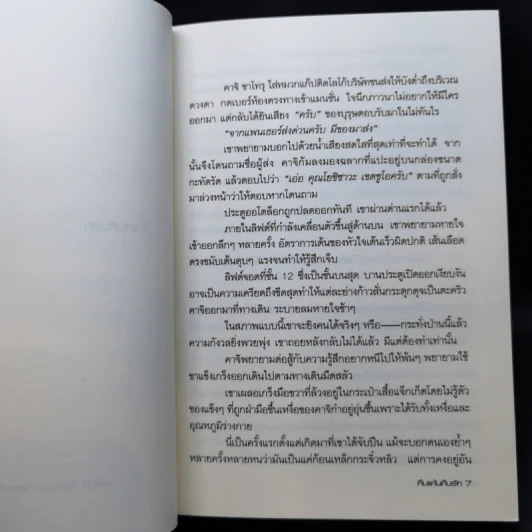 คาจิ ซาโทรุ ใส่หมวกแก๊ปติดโลโก้บริษัทขนส่งให้บังต่ำถึงบริเวณ
ดวงตา กดเบอร์ห้องตรงทางเข้าแมนชั่น ใจนึกภาวนาไม่อยากให้มีใคร
ออกมา แต่กลับได้ยินเสียง “ครับ” ของบุรุษตอบรับมาในไม่ทันไร
“จากแพนเธอร์ส่งด่วนครับ มีของมาส่ง”
เขาพยายามบอกไปด้วยน้ำเสียงสดใสที่สุดเท่าที่จะทำได้ จาก
นั้นจึงโดนถามชื่อผู้ส่ง คาจิก้มลงมองฉลากที่แปะอยู่บนกล่องขนาด
กะทัดรัด แล้วตอบไปว่า “เอ่อ คุณโยชิซาวะ เซตซูโอครับ” ตามที่ถูกสั่ง
มาล่วงหน้าว่าให้ตอบหากโดนถาม
ประตูออโต้ล็อกถูกปลดออกทันที เขาผ่านด่านแรกได้แล้ว
ภายในลิฟต์ที่กำลังเคลื่อนตัวขึ้นสู่ด้านบน เขาพยายามหายใจ
เข้าออกลึกๆ หลายครั้ง อัตราการเต้นของหัวใจเต้นเร็วผิดปกติ เส้นเลือด
ตรงขมับเต้นตุบๆ แรงจนทำให้รู้สึกเจ็บ
ลิฟต์จอดที่ชั้น 12 ซึ่งเป็นชั้นบนสุด บานประตูเปิดออกเงียบงัน
อาจเป็นความเครียดถึงขีดสุดทำให้แต่ละย่างก้าวสั่นกระตุกดุจเป็นตะคริว
คาจิออกมาที่ทางเดิน ระบายลมหายใจช้าๆ
ในสภาพแบบนี้เขาจะยิงคนได้จริงๆ หรือ——กระทั่งป่านนี้แล้ว
ความกังวลยิ่งพวยพุ่ง เขาถอยหลังกลับไม่ได้แล้ว มีแต่ต้องทำเท่านั้น
คาจิพยายามต่อสู้กับความรู้สึกอยากหนีไปให้พ้นๆ พยายามใช้
ขาแข็งเกร็งออกเดินไปตามทางเดินมืดสลัว
เขาเผลอเกร็งมือขวาที่ล้วงอยู่ในกระเป๋าเสื้อแจ็กเก็ตโดยไม่รู้ตัว
ของแข็งๆ ที่ถูกฝ่ามือชื้นเหงื่อของคาจิกำอยู่อุ่นขึ้นเพราะได้รับทั้งเหงื่อและ
อุณหภูมิร่างกาย
นี่เป็นครั้งแรกตั้งแต่เกิดมาที่เขาได้จับปืน แม้จะบอกตนเองย้ำๆ
หลายครั้งหลายหนว่ามันเป็นแค่ก้อนเหล็กกระจิ๋วหลิว แต่การคงอยู่อัน
คืนแค้นคืนรัก 7